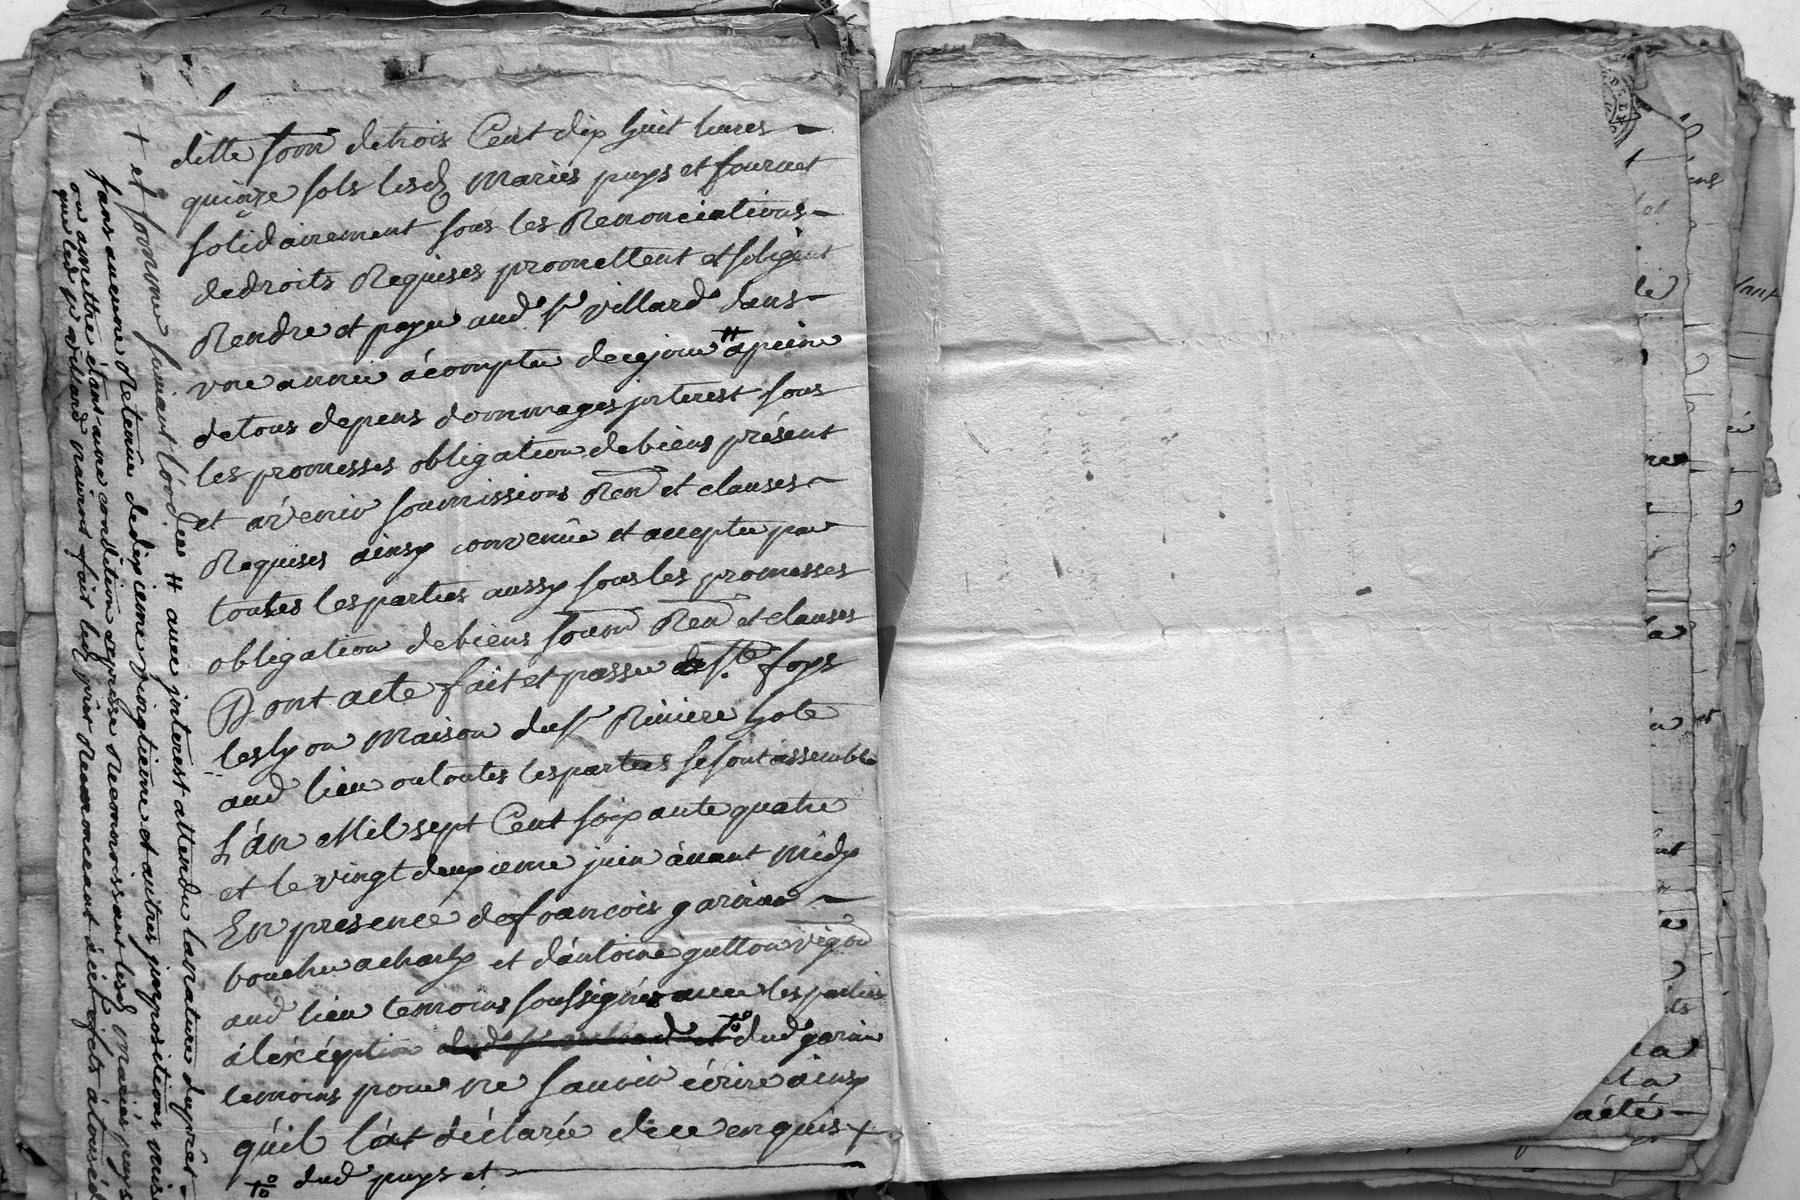 ditte som̃e de trois Cent dix huit livres
quinze sols lesd. Mariés puys et fournet
solidairement sous les Renonciations
de droits Requises promettent et soligent
Rendre et payer aud. Sr villard dans
une année à compter de ce jour # a peine
de tous depens dommages jnterest sous
les promesses obligation de biens présent
et avenir soumissions Ren et clauses
Requises ainsy convenüe et acceptée par
toutes les parties aussy sous les promesses
obligation de biens soum Ren et clauses
Dont acte fait et passé de Ste foys
leslyon Maison du Sr Riviere hote
aud lieu ou toutes les parties se sont assemblé
L'an Mil sept Cent soixante quatre
et le vingt deuxieme juin avant Midy
En presence de françois garin
boucher a charly et d'antoine gutton vigon
aud lieu temoins soussignés avec les parties
à léxéception dud garin
temoins pour ne sauoir écrire ainsy
qu'il l'a déclaré de ce enquis +
dud puys et
+ et somme faisant lordre # avec jnterest attendu la nature du prêt
sans aucune Retenüe de dixieme vingtieme et autres jmpositions mise
ou a mettre étant une condition expresse Reconnoissant lesd mariés puys
que led. Sr villard n'auroit fait led. prêt Renonceant à cet efets à tous éd